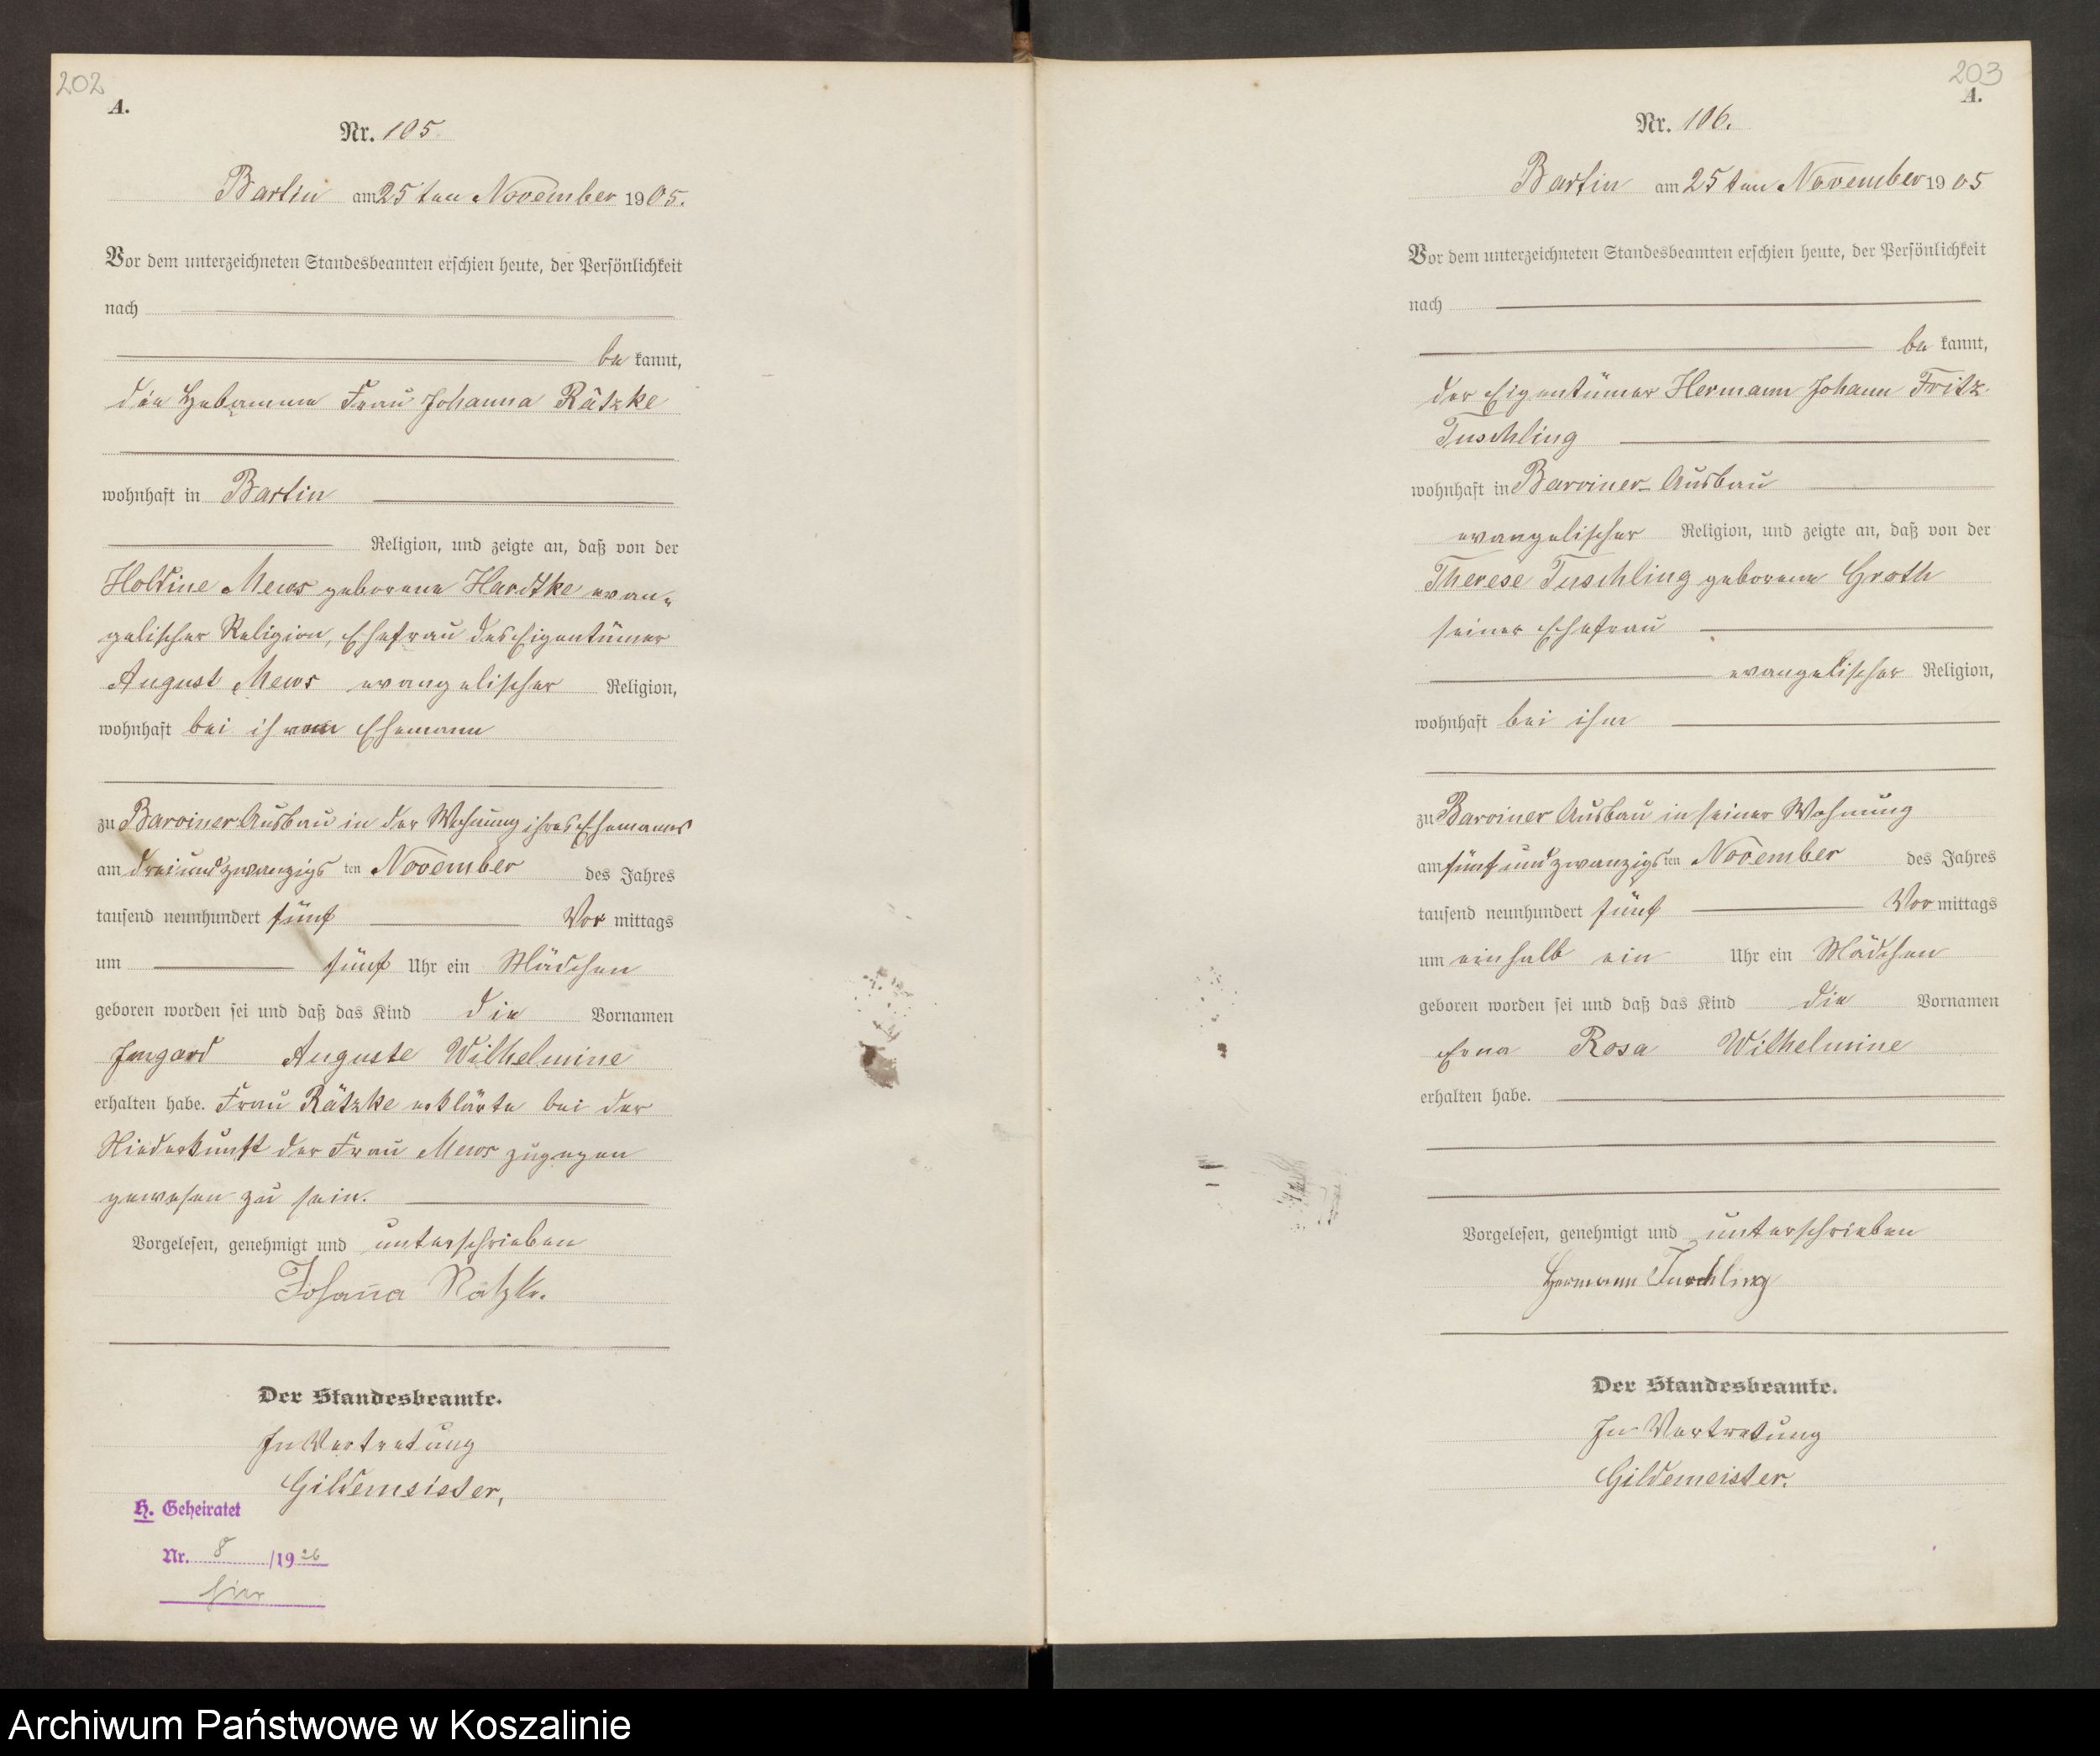 202
A.
Nr. 105.
Bartin am 25ten November 1905.
Vor dem unterzeichneten Standesbeamten erschien heute, der Persönlichkeit
nach
be kannt,
die Hebamme Frau Johanna Rätzke
wohnhaft in Bartin
Religion, und zeigte an, daß von der
Holdine Mews geborene Hardtke evan-
gelischer Religion, Ehefrau des Eigentümer
August Mews evangelischer Religion,
wohnhaft bei ihrem Ehemann
zu Barviner Ausbau in der Wohnung ihres Ehemannes
am dreiundzwanzigs ten November des Jahres
tausend neunhundert fünf Vor mittags
um fünf Uhr ein Mädchen
geboren worden sei und daß das Kind die Vornamen
Irmgard Auguste Wilhelmine
erhalten habe. Frau Rätzke erklärte bei der
Niederkunft der Frau Mews zugegen
gewesen zu sein.
Vorgelesen, genehmigt und unterschrieben
Johanna Rätzke.
Der Standesbeamte.
In Vertretung
Gildemeister,
H. Geheiratet
Nr. 8 /1926
hier
203
A.
Nr. 106.
Bartin am 25ten November 1905
Vor dem unterzeichneten Standesbeamten erschien heute, der Persönlichkeit
nach
be kannt,
der Eigentümer Hermann Johann Fritz
Tuschling
wohnhaft in Barviner Ausbau
evangelischer Religion, und zeigte an, daß von der
Therese Tuschling geborene Groth
seiner Ehefrau
evangelischer Religion,
wohnhaft bei ihm
zu Barviner Ausbau in seiner Wohnung
am fünfundzwanzigs ten November des Jahres
tausend neunhundert fünf Vor mittags
um einhalb ein Uhr ein Mädchen
geboren worden sei und daß das Kind die Vornamen
Erna Rosa Wilhelmine
erhalten habe.
Vorgelesen, genehmigt und unterschrieben
Hermann Tuschling
Der Standesbeamte.
In Vertretung
Gildemeister.
Archiwum Państwowe w Koszalinie